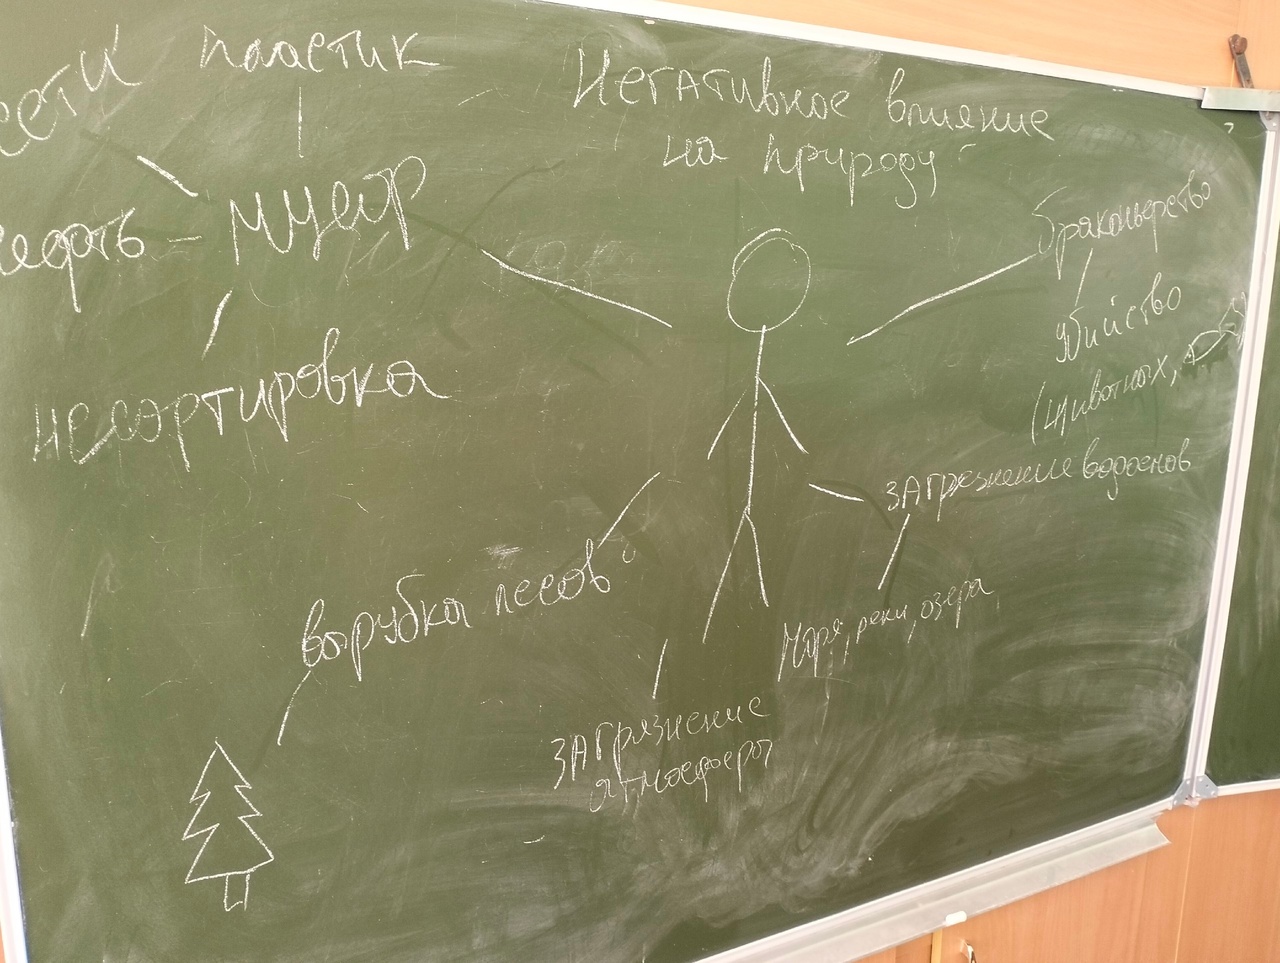 сети пластик
нефть - мусор
несортировка
Негативное влияние
на природу
браконьерство
убийство
(животных,
загрезнение водоемов
моря, реки, озера
вырубка лесов
загрязнение
атмосферы